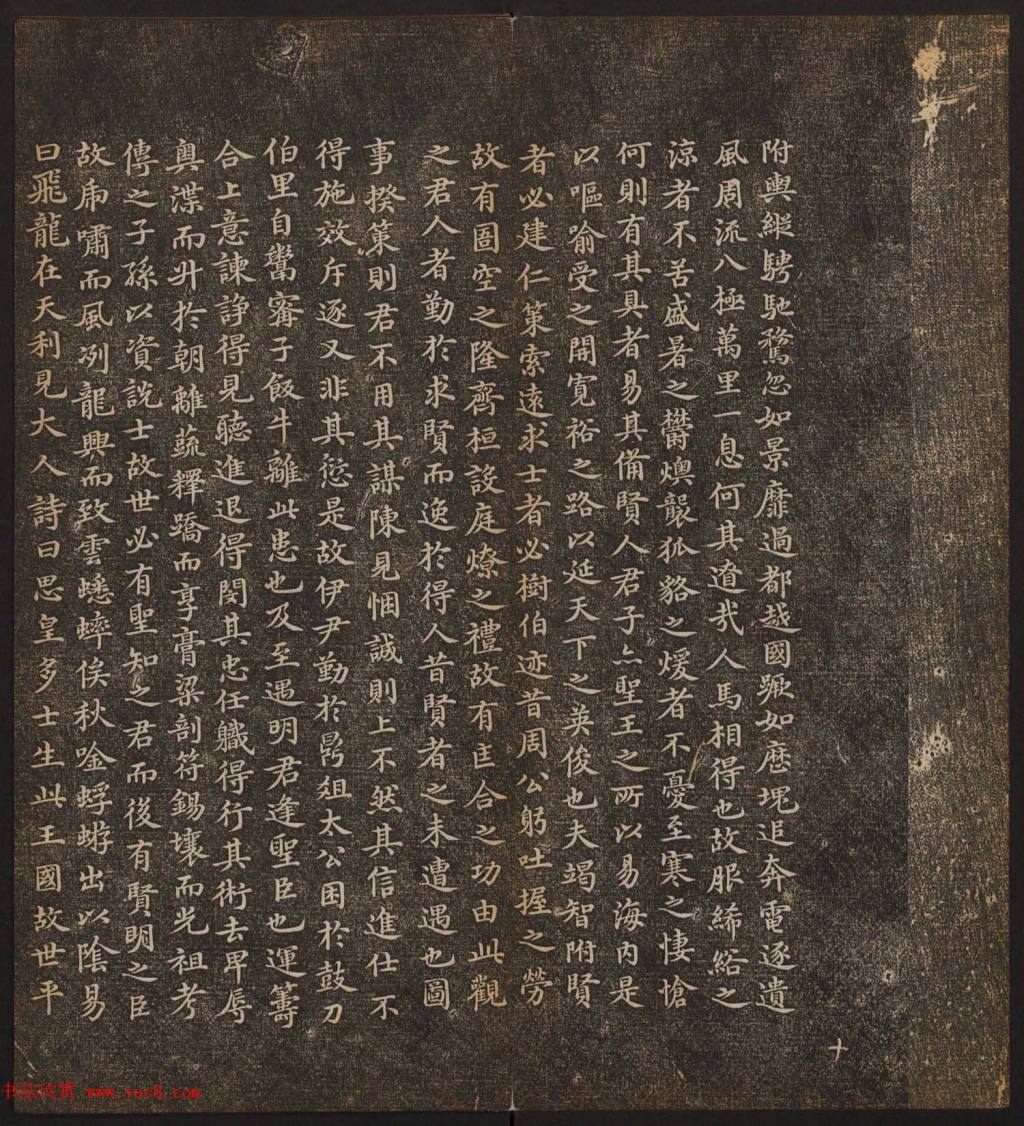 附輿縱騁馳騖忽如景靡過都越國蹶如歷塊追奔電逐遺
風周流八極萬里一息何其遼哉人馬相得也故服絺綌之
涼者不苦盛暑之鬱燠襲狐貉之煖者不憂至寒之悽愴
何則有其具者易其備賢人君子亦聖王之所以易海內是
以嘔喻受之開寬裕之路以延天下之英俊也夫竭智附賢
者必建仁策索遠求士者必樹伯迹昔周公躬吐握之勞
故有圄空之隆齊桓設庭燎之禮故有匡合之功由此觀
之君人者勤於求賢而逸於得人昔賢者之未遭遇也圖
事揆策則君不用其謀陳見悃誠則上不然其信進仕不
得施效斥逐又非其愆是故伊尹勤於鼎俎太公困於鼓刀
伯里自鬻甯子飯牛離此患也及至遇明君逢聖臣也運籌
合上意諫諍得見聽進退得關其忠任職得行其術去卑辱
奧渫而升於朝離蔬釋蹻而享膏粱剖符錫壤而光祖考
傳之子孫以資說士故世必有聖知之君而後有賢明之臣
故虎嘯而風冽龍興而致雲蟋蟀俟秋唫蜉蝣出以陰易
曰飛龍在天利見大人詩曰思皇多士生此王國故世平
十
书法欣赏 www.yac8.com